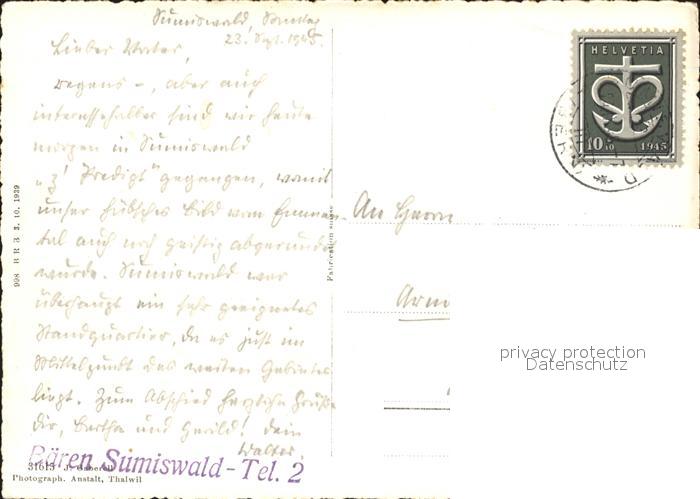 Sumiswald, Sonntag
23. Sept. 1945.
Lieber Vater,
wegens –, aber auch
interessehalber sind wir heute
morgen in Sumiswald
„z' Predigt" gegangen, womit
unser hübsches Bild vom Emmen-
tal auch noch geistig abgerundet
wurde. Sumiswald war
überhaupt ein sehr geeignetes
Standquartier, da es just im
Mittelpunkt des weiten Gebietes
liegt. Zum Abschied herzliche Grüße
Dir, Bertha und Dein
Walter.
Bären Sumiswald - Tel. 2
31613 J. Gaberell
Photograph. Anstalt, Thalwil
998 B R B 3. 10. 1939
Fabrication suisse
HELVETIA
10+10 1945
An Herrn
privacy protection
Datenschutz